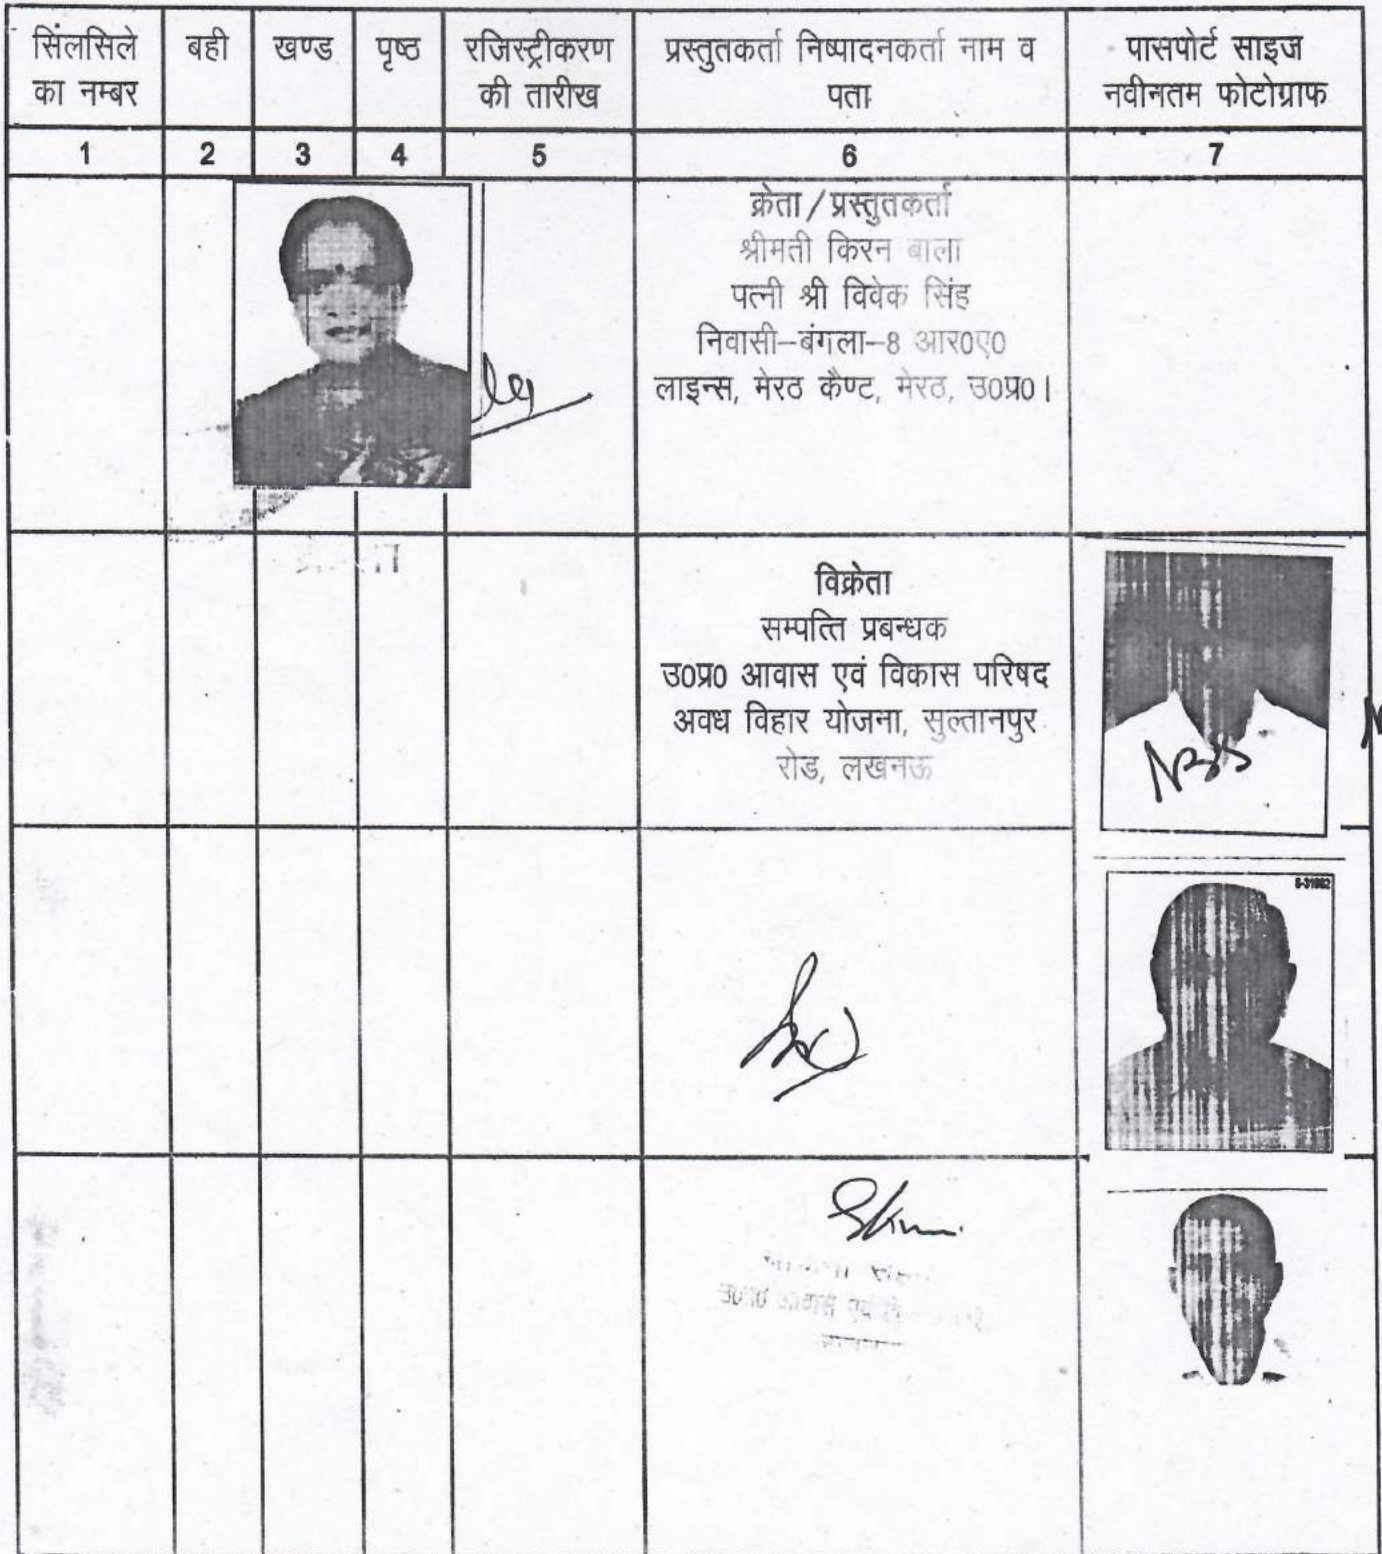 सिंलसिले का नम्बर
बही
खण्ड
पृष्ठ
रजिस्ट्रीकरण की तारीख
प्रस्तुतकर्ता निष्पादनकर्ता नाम व पता
पासपोर्ट साइज नवीनतम फोटोग्राफ
1 2 3 4 5 6 7
क्रेता / प्रस्तुतकर्ता
श्रीमती किरन बाला
पत्नी श्री विवेक सिंह
निवासी–बंगला–8 आर0ए0
लाइन्स, मेरठ कैण्ट, मेरठ, उ0प्र0।
विक्रेता
सम्पत्ति प्रबन्धक
उ0प्र0 आवास एवं विकास परिषद
अवध विहार योजना, सुल्तानपुर
रोड, लखनऊ